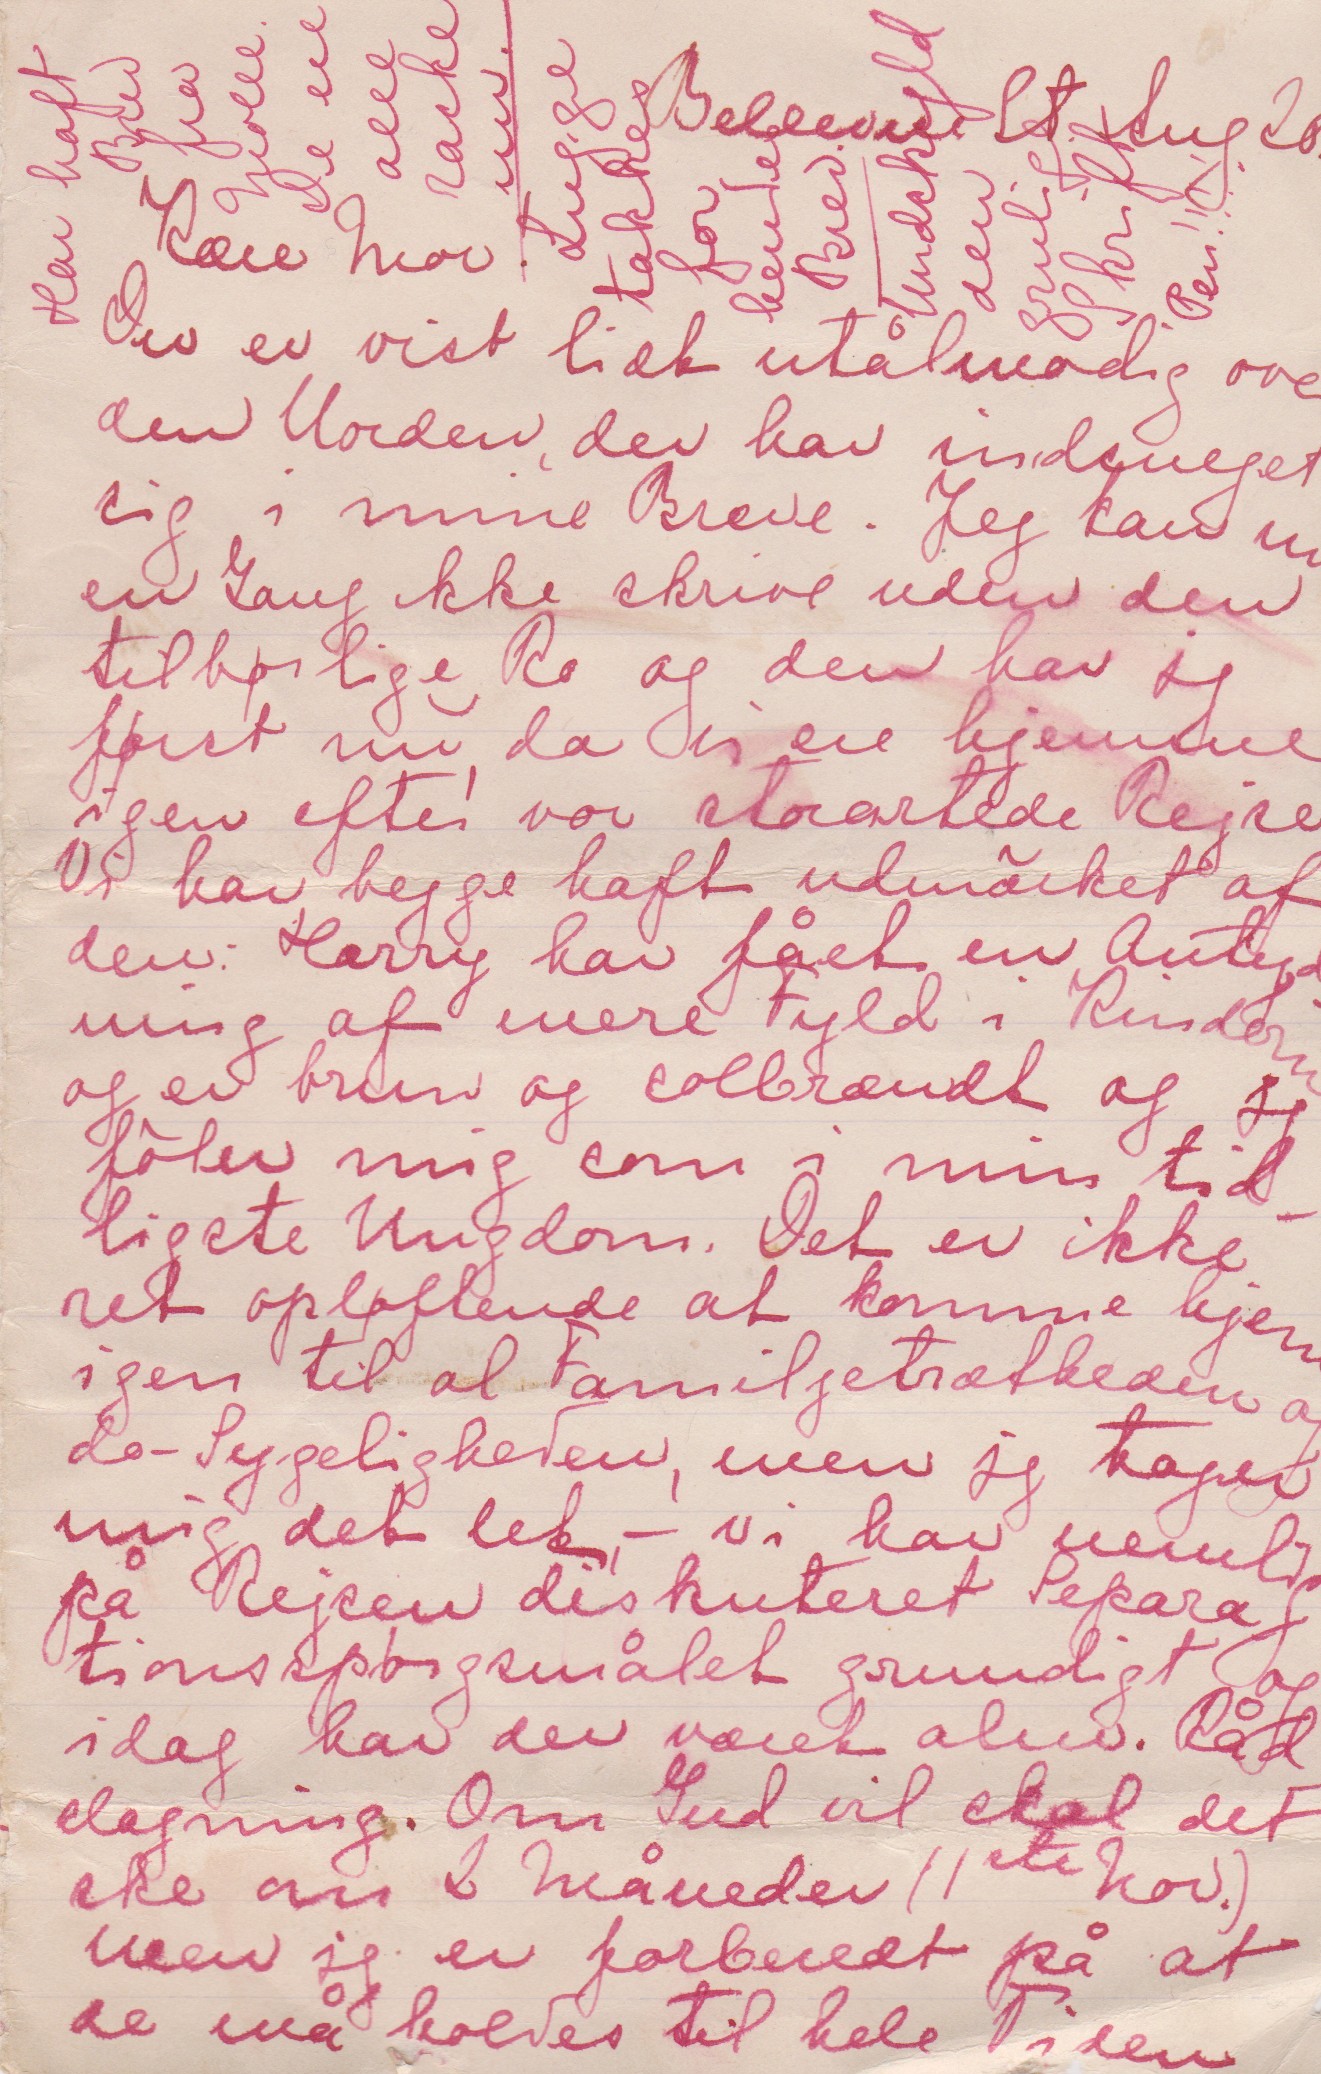 Bellevue St. Aug 20.
Kære Mor!
Du er vist lidt utålmodig ove
den Uorden, der har indsneget
sig i mine Breve. Jeg kan nu
en Gang ikke skrive uden den
tilbørlige Ro og den har jg
først nu, da vi ere hjemme
igen efter vor storartede Rejse
Vi har begge haft udmärket af
den: Harry har fået en Antyd
ning af mere Fyld i Kinderne
og er brun og solbrændt og jg
föler mig som i min tid-
ligste Ungdom. Det er ikke
ret opløftende at komme hjem
igen til al Familjetrætheden og
do-Sygeligheden, men jg tager
mig det let, – vi har nemlig
på Rejsen diskuteret Separa
tionsspørgsmålet grundigt og
idag har der været alm. Råd
slagning. Om Gud vil skal det
ske om 2 Måneder (1ste Nov.)
Men jg er forberedt på at
de må holdes til hele Tiden
Har haft
Brev
fra
De ere
alle
raske
nu.
takkes
for
hendes
Brev.
Undskyld
den
Skrift
Pen!!